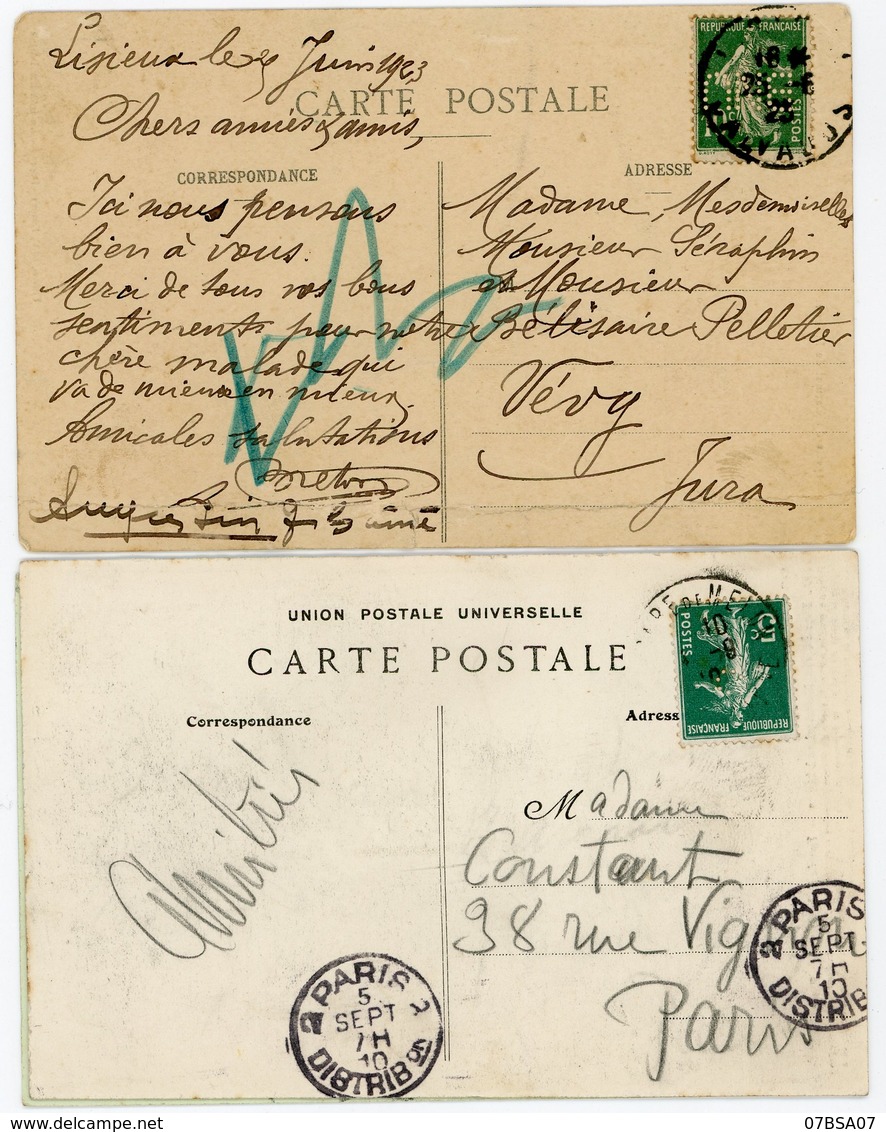 Lisieux le 25 Juin 1923
CARTE POSTALE
Chers amies & amis,
CORRESPONDANCE
Ici nous pensons
bien à vous.
Merci de tous vos bons
sentiments pour notre
chère malade qui
va de mieux en mieux
Amicales salutations
Breton
ADRESSE
Madame, Mesdemoiselles
Monsieur Séraphin
et Monsieur
Bélisaire Pelletier
Vévy
Jura
REPUBLIQUE FRANÇAISE
POSTES
CALVADOS
UNION POSTALE UNIVERSELLE
CARTE POSTALE
Correspondance
Amitiés
Adress
Madame
Constant
98 rue
Paris
5
POSTES
REPUBLIQUE FRANÇAISE
2 PARIS 2
5
SEPT
7H
10
DISTRIB
PARIS
5
SEPT
7H
10
DISTRIB
07BSA07